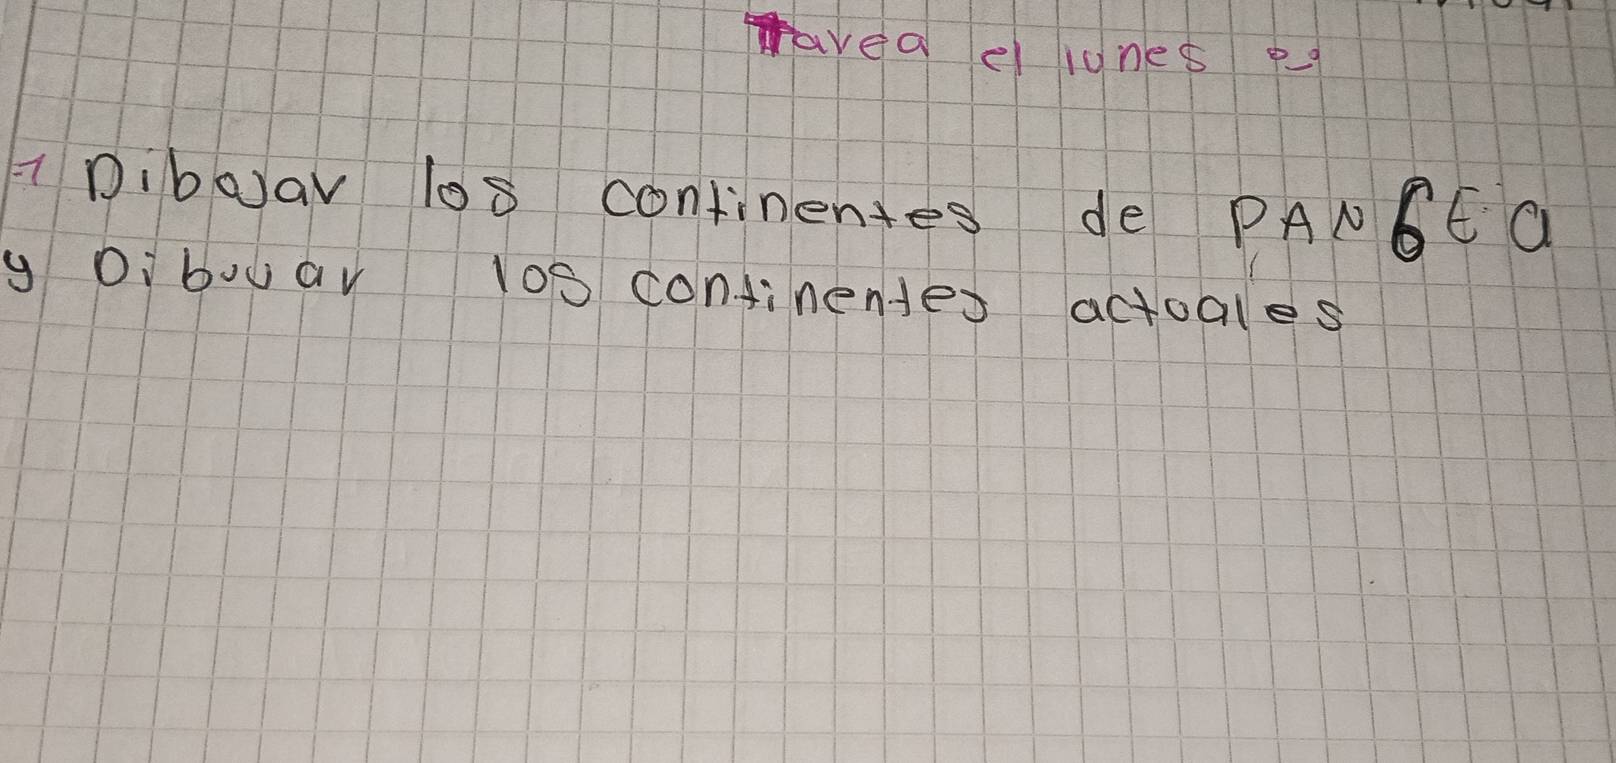 Tarea el lunes
Dibujar los continentes de PANGEa
y Dibujar los continentes actuales